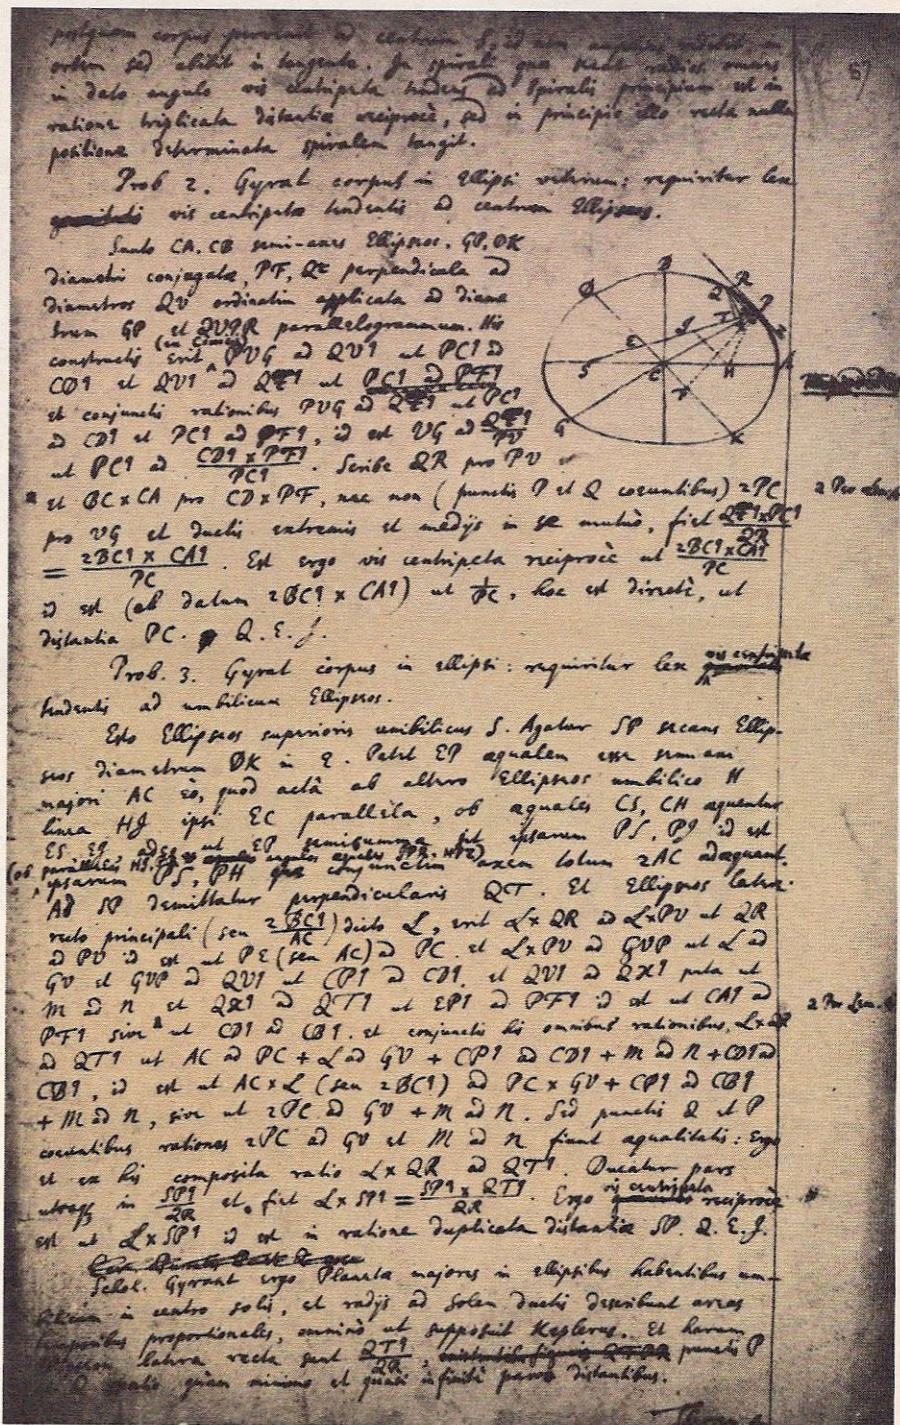 postquam corpus pervenit ad centrum S, id non amplius redibit in
orbem sed abibit in tangente. In spirali quæ secat radios omnes
in dato angulo vis centripeta tendens ad Spiralis principium est in
ratione triplicata distantiæ reciprocè, sed in principio illo recta nulla
positione determinata spiralem tangit.
57
Prob 2. Gyrat corpus in Ellipsi veterum: requiritur lex
vis centripetæ tendentis ad centrum Ellipseos.
Sunto CA, CB semi-axes Ellipseos, GP, DK
diametri conjugatæ, PF, Qt perpendicula ad
diametros QV ordinatim applicata ad diame
trum GP et QVPR parallelogrammum. His
constructis erit (ex Conicis) PVG ad QVq ut PCq ad
CDq et QVq ad Qtq ut PCq ad PFq
et conjunctis rationibus PVG ad Qtq ut PCq
ad CDq et PCq ad PFq, id est VG ad Qtq/PV
ut PCq ad CDq × PFq/PCq. Scribe QR pro PV
et BC×CA pro CD×PF, nec non (punctis P et Q coeuntibus) 2PC
a Per
pro VG et ductis extremis et medijs in se mutuò, fiet Qtq×PCq/QR
= 2BCq × CAq/PC. Est ergo vis centripeta reciprocè ut 2BCq×CAq/PC
id est (ob datum 2BCq × CAq) ut 1/PC, hoc est directè, ut
distantia PC. Q. E. J.
Prob. 3. Gyrat corpus in ellipsi: requiritur lex vis centripetæ
tendentis ad umbilicum Ellipseos.
Esto Ellipseos superioris umbilicus S. Agatur SP secans Ellip-
seos diametrum DK in E. Patet EP æqualem esse semiaxi
majori AC eò, quod actâ ab altero Ellipseos umbilico H
linea HJ ipsi EC parallela, ob æquales CS, CH æquentur
ES, EJ adeo ut EP semisumma sit ipsarum PS, PJ id est
(ob parallelas HJ, PR et angulos æquales JPR, HPZ)
ipsarum PS, PH quæ conjunctim axem totum 2AC adæquant.
Ad SP demittatur perpendicularis QT. Et Ellipseos latere
recto principali (seu 2BCq/AC) dicto L, erit L×QR ad L×PV ut QR
ad PV id est ut PE (seu AC) ad PC. et L×PV ad GVP ut L ad
GV et GVP ad QVq ut CPq ad CDq. et QVq ad QXq puta ut
M ad N et QXq ad QTq ut EPq ad PFq id est ut CAq ad
a Per Lem.
PFq sive a ut CDq ad CBq. et conjunctis his omnibus rationibus, L×QR
ad QTq ut AC ad PC + L ad GV + CPq ad CDq + M ad N + CDq ad
CBq, id est ut AC×L (seu 2BCq) ad PC × GV + CPq ad CBq
+ M ad N, sive ut 2PC ad GV + M ad N. Sed punctis Q et P
coeuntibus rationes 2PC ad GV et M ad N fiunt æqualitatis: Ergo
et ex his composita ratio L×QR ad QTq. Ducatur pars
utraq in SPq/QR et fiet L×SPq = SPq × QTq/QR. Ergo vis centripeta reciprocè
est ut L×SPq id est in ratione duplicata distantiæ SP. Q. E. J.
Schol. Gyrant ergo Planetæ majores in ellipsibus habentibus um-
bilicum in centro solis, et radijs ad Solem ductis describunt areas
temporibus proportionales, omninò ut supposuit Keplerus. Et harum
latera recta sunt QTq/QR, punctis P
Q spatio quàm minimo et quasi infinitè parvo distantibus.